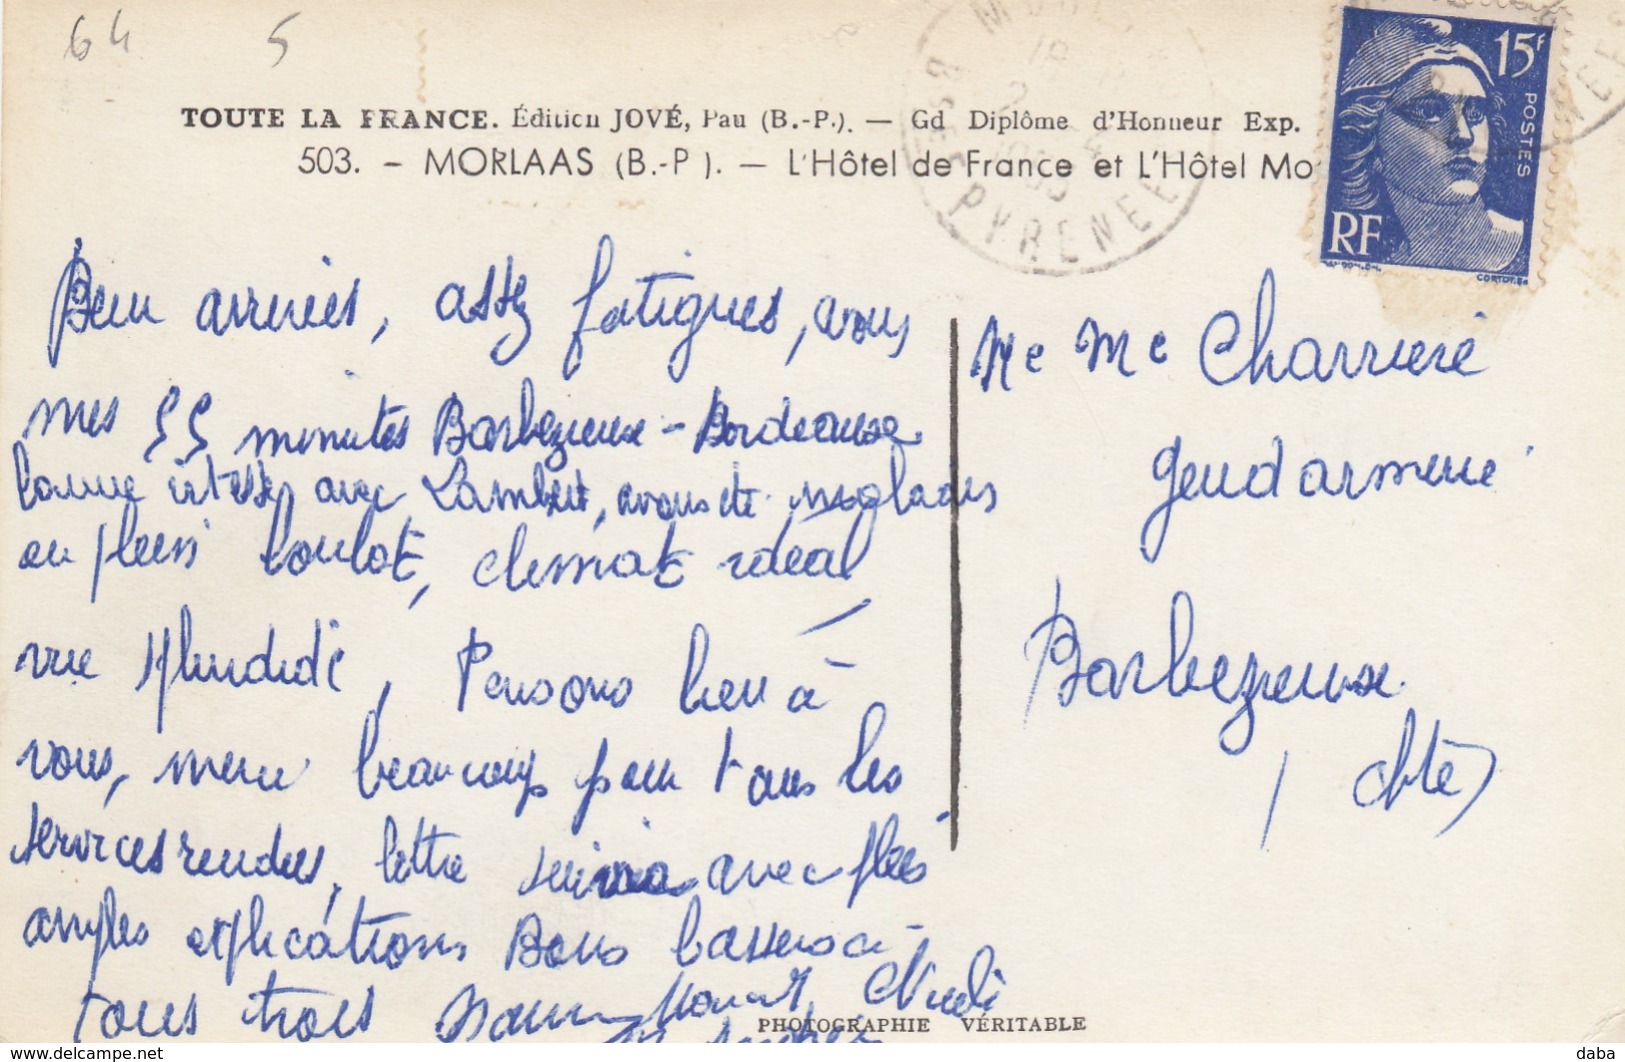 64 5
TOUTE LA FRANCE. Édition JOVÉ, Pau (B.-P.). — Gd Diplôme d'Honneur Exp.
503. - MORLAAS (B.-P.). — L'Hôtel de France et L'Hôtel Mo
15F
POSTES
RF
PYRENEE
Bien arrivés, assez fatigués, avons
mes 55 minutes Barbezieux - Bordeaux
bonne vitesse avec Lambert, avons été
en plein boulot, climat idéal
vue splendide, Pensons bien à
vous, merci beaucoup pour tous les
services rendus, lettre avec plus
amples explications Bons baisers à
tous trois
Me Me Charrière
Gendarmerie
Barbezieux
Chte)
PHOTOGRAPHIE VÉRITABLE
https://www.delcampe.net
daba